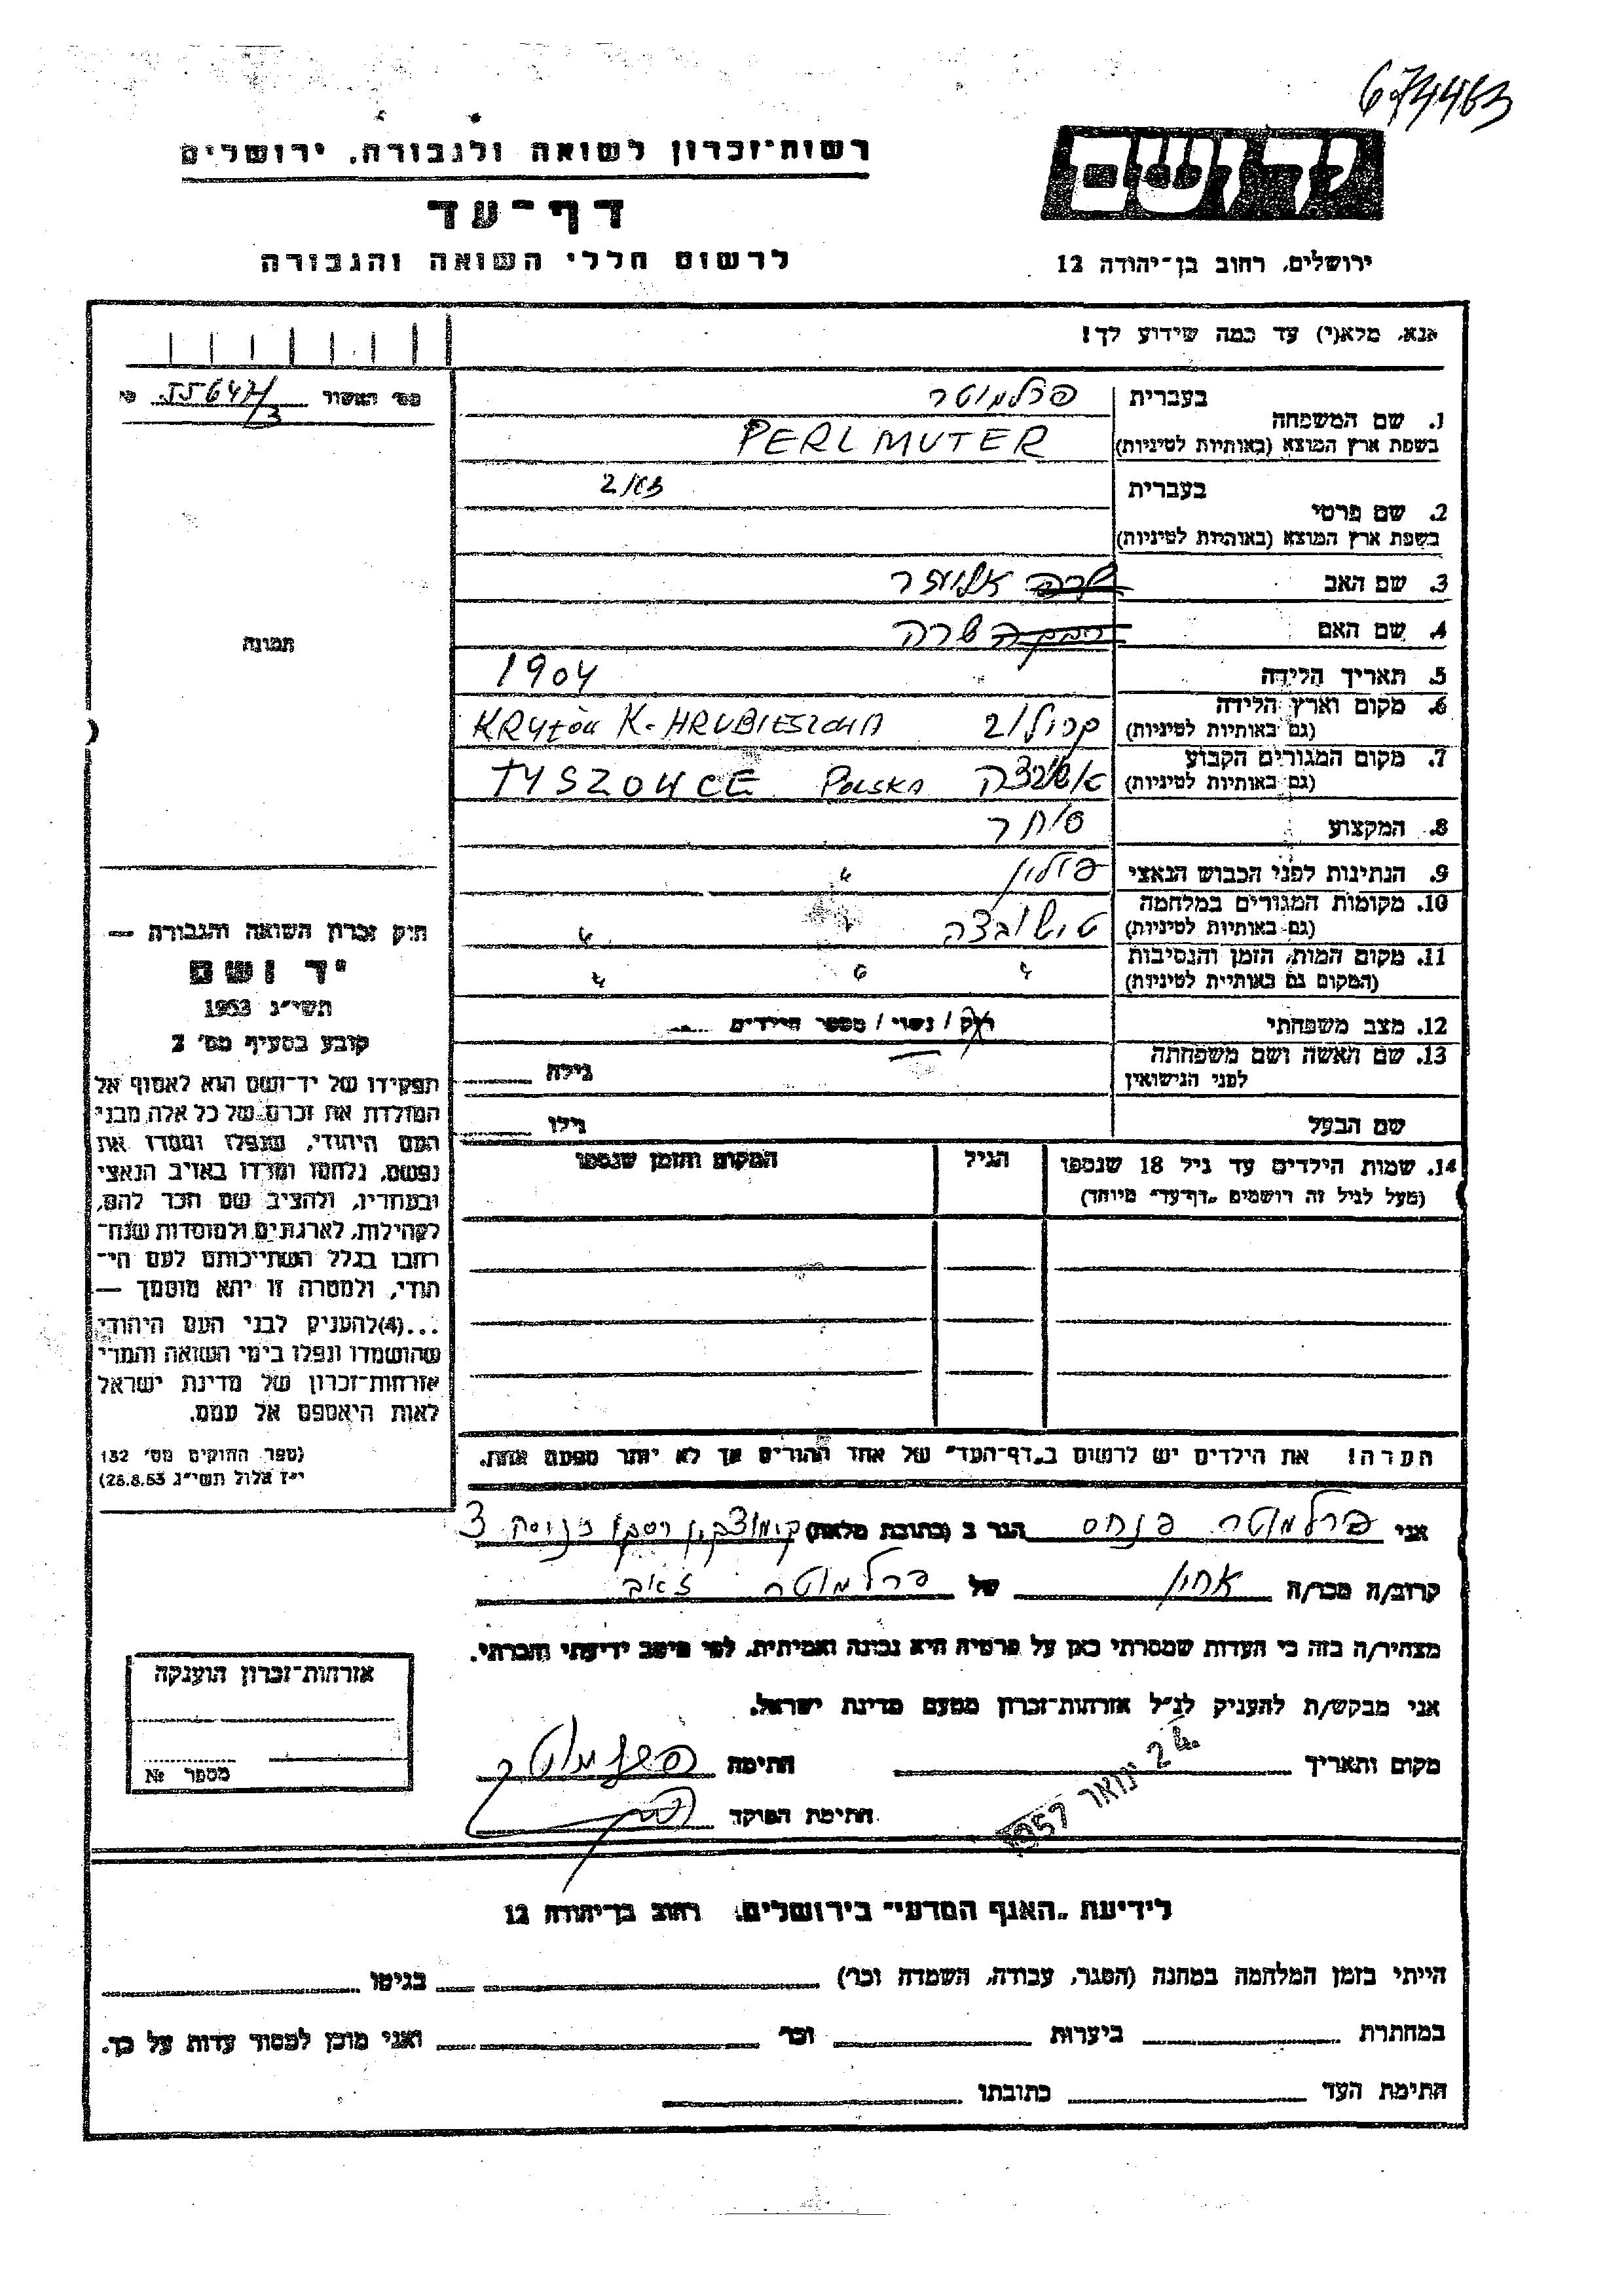 674463
רשות־זכרון לשואה ולגבורה, ירושלים
יד ושם
דף־עד
לרשום חללי השואה והגבורה
ירושלים, רחוב בן־יהודה 12
אנא, מלא(י) עד כמה שידוע לך!
1. שם המשפחה
בעברית פרלמוטר
בשפת ארץ המוצא (באותיות לטיניות) PERLMUTER
2. שם פרטי
בעברית זאב
בשפת ארץ המוצא (באותיות לטיניות)
3. שם האב
4. שם האם שרה
5. תאריך הלידה 1904
6. מקום וארץ הלידה
(גם באותיות לטיניות) KRYŁÓW K. HRUBIESZOWA
7. מקום המגורים הקבוע
(גם באותיות לטיניות) TYSZOWCE POLSKA
8. המקצוע סוחר
9. הנתינות לפני הכבוש הנאצי פולין "
10. מקומות המגורים במלחמה
(גם באותיות לטיניות) טישובצה " "
11. מקום המות, הזמן והנסיבות
(המקום גם באותיות לטיניות) " " "
12. מצב משפחתי רוק / נשוי / מספר הילדים
13. שם האשה ושם משפחתה
לפני הנישואין גילה
שם הבעל גילו
14. שמות הילדים עד גיל 18 שנספו
(מעל לגיל זה רושמים „דף־עד" מיוחד)
הגיל
המקום והזמן שנספו
הערה! את הילדים יש לרשום ב„דף־העד" של אחד ההורים אך לא יותר מפעם אחת.
מס׳ האשור 55647/3
תמונה
חוק זכרון השואה והגבורה —
יד ושם
תשי"ג 1953
קובע בסעיף מס׳ 2
תפקידו של יד־ושם הוא לאסוף אל
המולדת את זכרם של כל אלה מבני
העם היהודי, שנפלו ומסרו את
נפשם, נלחמו ומרדו באויב הנאצי
ובעוזריו, ולהציב שם וזכר להם,
לקהילות, לארגונים ולמוסדות שנח־
רבו בגלל השתייכותם לעם הי־
הודי, ולמטרה זו יהא מוסמך —
...(4)להעניק לבני העם היהודי
שהושמדו ונפלו בימי השואה והמרי
אזרחות־זכרון של מדינת ישראל
לאות היאספם אל עמם.
(ספר החוקים מס׳ 132
י"ז אלול תשי"ג 28.8.53)
אני פרלמוטר פנחס הגר ב (כתובת מלאה) 3
קרוב/ה מכר/ה אחין של פרלמוטר זאב
מצהיר/ה בזה כי העדות שמסרתי כאן על פרטיה היא נכונה ואמיתית, לפי מיטב ידיעתי והכרתי.
אני מבקש/ת להעניק לנ"ל אזרחות־זכרון מטעם מדינת ישראל.
מקום ותאריך 24 ינואר 1957 חתימה פרלמוטר
חתימת הפוקד
אזרחות־זכרון הוענקה
מספר №
לידיעת „האגף המדעי" בירושלים, רחוב בן־יהודה 12
הייתי בזמן המלחמה במחנה (הסגר, עבודה, השמדה וכו׳) בגיטו
במחתרת ביערות וכו׳ ואני מוכן למסור עדות על כך.
חתימת העד כתובתו